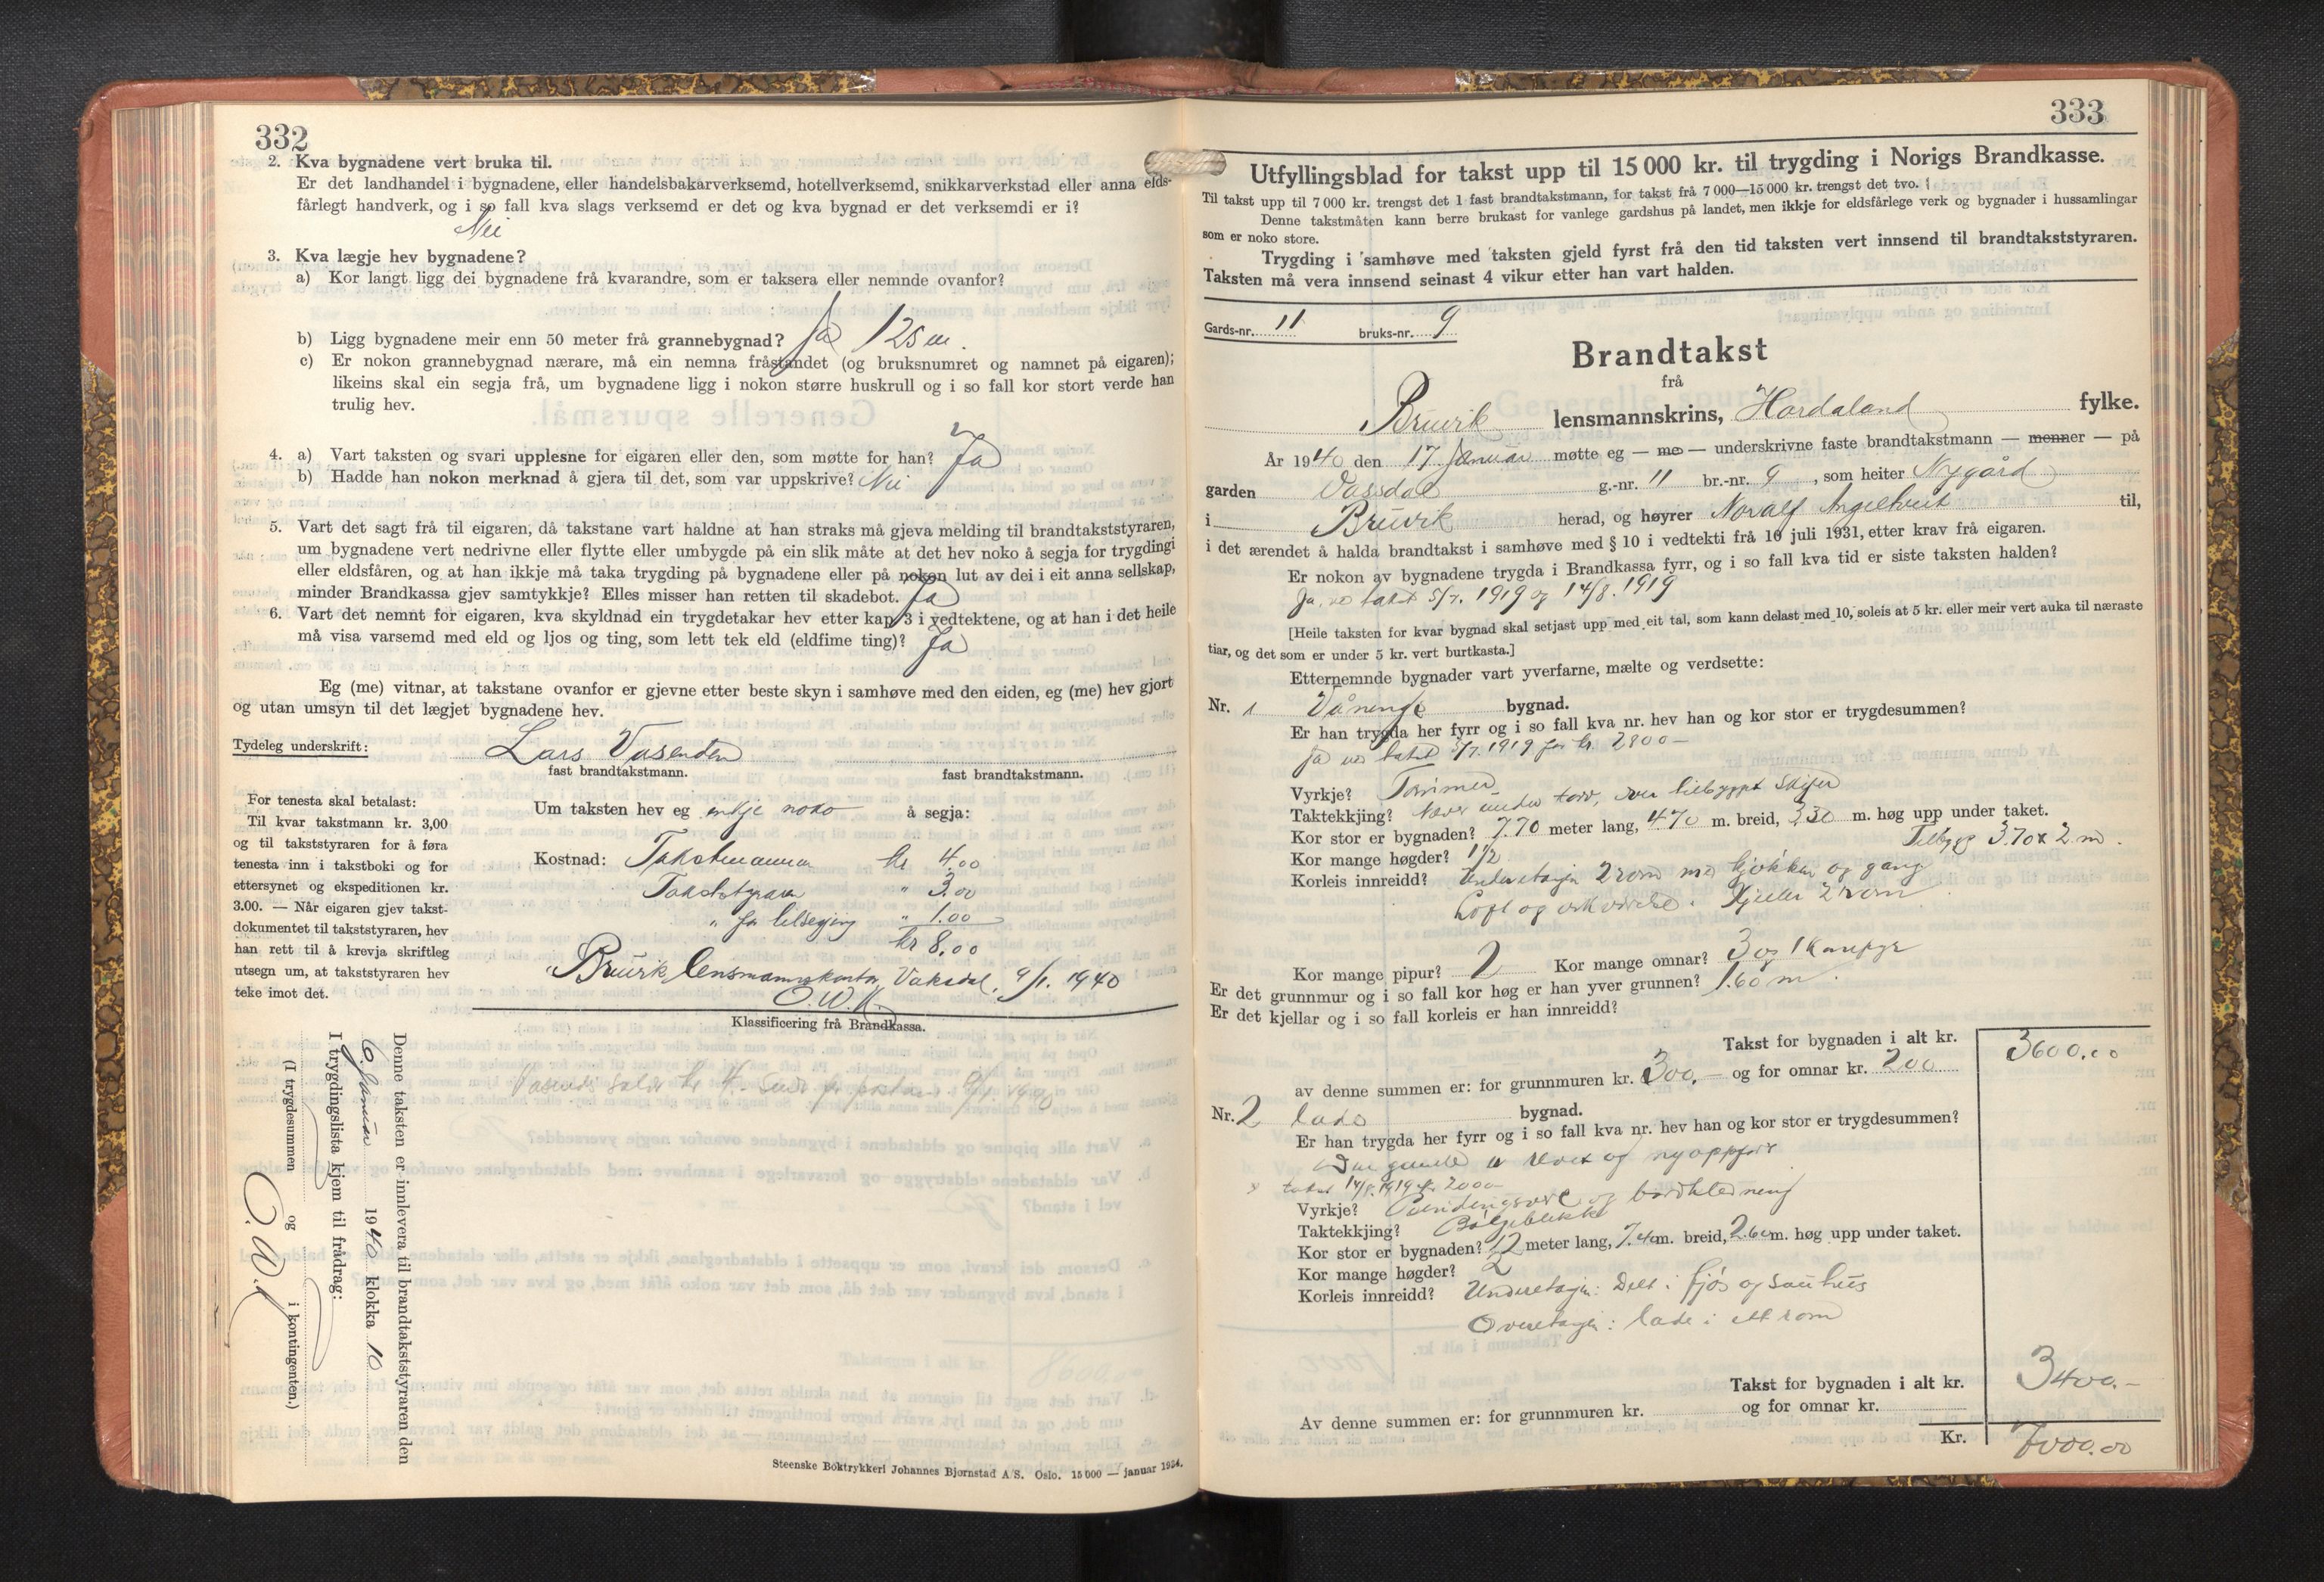 332
2. Kva bygnadene vert bruka til.
Er det landhandel i bygnadene, eller handelsbakarverksemd, hotellverksemd, snikkarverkstad eller anna elds-
fårlegt handverk, og i so fall kva slags verksemd er det og kva bygnad er det verksemdi er i?
Nei
3. Kva lægje hev bygnadene?
a) Kor langt ligg dei bygnadene frå kvarandre, som er taksera eller nemnde ovanfor?
b) Ligg bygnadene meir enn 50 meter frå grannebygnad? Ja 125 m.
c) Er nokon grannebygnad nærare, må ein nemna fråstandet (og bruksnumret og namnet på eigaren);
likeins skal ein segja frå, um bygnadene ligg i nokon større huskrull og i so fall kor stort verde han
trulig hev.
4. a) Vart taksten og svari upplesne for eigaren eller den, som møtte for han? Ja
b) Hadde han nokon merknad å gjera til det, som var uppskrive? Nei
5. Vart det sagt frå til eigaren, då takstane vart haldne at han straks må gjeva melding til brandtakststyraren,
um bygnadene vert nedrivne eller flytte eller umbygde på ein slik måte at det hev noko å segja for trygdingi
eller eldsfåren, og at han ikkje må taka trygding på bygnadene eller på nokon lut av dei i eit anna sellskap,
minder Brandkassa gjev samtykkje? Elles misser han retten til skadebot. Ja
6. Vart det nemnt for eigaren, kva skyldnad ein trygdetakar hev etter kap 3 i vedtektene, og at han i det heile
må visa varsemd med eld og ljos og ting, som lett tek eld (eldfime ting)? Ja
Eg (me) vitnar, at takstane ovanfor er gjevne etter beste skyn i samhøve med den eiden, eg (me) hev gjort
og utan umsyn til det lægjet bygnadene hev.
Tydeleg underskrift: Lars Vasenden
fast brandtakstmann. fast brandtakstmann.
For tenesta skal betalast:
Til kvar takstmann kr. 3,00
og til takststyraren for å føra
tenesta inn i takstboki og for
ettersynet og ekspeditionen kr.
3.00. — Når eigaren gjev takst-
dokumentet til takststyraren, hev
han rett til å krevja skriftleg
utsegn um, at takststyraren hev
teke imot det.
Um taksten hev eg inkje noko å segja:
Kostnad: Takstmannen kr 4.00
Takststyraren " 3.00
" for tilsegjing " 1.00
kr 8.00
Bruvik lensmannskontor, Vaksdal, 9/1. 1940
O.W.K.
Klassificering frå Brandkassa.
kr 4. sendt pr 9/1. 1940
Denne taksten er innlevera til brandtakststyraren den
6 januar 1940 klokka 10
I trygdingslista kjem til frådrag:
(I trygdesummen og i kontingenten.)
O.W.K
Steenske Boktrykkeri Johannes Bjørnstad A/S. Oslo. 15 000 — januar 1934.
333
Utfyllingsblad for takst upp til 15 000 kr. til trygding i Norigs Brandkasse.
Til takst upp til 7 000 kr. trengst det 1 fast brandtakstmann, for takst frå 7 000—15 000 kr. trengst det tvo.
Denne takstmåten kann berre brukast for vanlege gardshus på landet, men ikkje for eldsfårlege verk og bygnader i hussamlingar
som er noko store.
Trygding i samhøve med taksten gjeld fyrst frå den tid taksten vert innsend til brandtakststyraren.
Taksten må vera innsend seinast 4 vikur etter han vart halden.
Gards-nr. 11 bruks-nr. 9
Brandtakst
frå
Bruvik lensmannskrins, Hordaland fylke.
År 1940 den 17 januar møtte eg — me — underskrivne faste brandtakstmann — menner — på
garden Vassdal g.-nr. 11 br.-nr. 9, som heiter Nygård
i Bruvik herad, og høyrer Noralf til,
i det ærendet å halda brandtakst i samhøve med § 10 i vedtekti frå 10 juli 1931, etter krav frå eigaren.
Er nokon av bygnadene trygda i Brandkassa fyrr, og i so fall kva tid er siste taksten halden?
Ja, ved takst 5/7. 1919 og 14/8. 1919
[Heile taksten for kvar bygnad skal setjast upp med eit tal, som kann delast med 10, soleis at 5 kr. eller meir vert auka til næraste
tiar, og det som er under 5 kr. vert burtkasta.]
Etternemnde bygnader vart yverfarne, mælte og verdsette:
Nr. 1 Vånings bygnad.
Er han trygda her fyrr og i so fall kva nr. hev han og kor stor er trygdesummen?
Ja ved takst 5/7. 1919 for kr. 2800—
Vyrkje? Tømmer
Taktekkjing? Never under torv, over tilbygget skifer
Kor stor er bygnaden? 7.70 meter lang, 4.70 m. breid, 3.30 m. høg upp under taket.
Tilbygg 3.70 x 2 m.
Kor mange høgder? 1 1/2
Korleis innreidd? Underetagen 2 rom med kjøkken og gang
Loft og Kjeller 2 rom
Kor mange pipur? 2 Kor mange omnar? 3 og 1 komfyr
Er det grunnmur og i so fall kor høg er han yver grunnen? 1.60 m.
Er det kjellar og i so fall korleis er han innreidd?
Takst for bygnaden i alt kr. 3600.00
av denne summen er: for grunnmuren kr. 300.— og for omnar kr. 200
Nr. 2 lade bygnad.
Er han trygda her fyrr og i so fall kva nr. hev han og kor stor er trygdesummen?
Den gamle er revet og nyoppført
takst 14/8. 1919 kr. 2000—
Vyrkje? Bindingsverk og bordkledning
Taktekkjing? Bølgeblikk
Kor stor er bygnaden? 12 meter lang, 7.40 m. breid, 2.60 m. høg upp under taket.
Kor mange høgder? 2
Korleis innreidd? Underetagen: Delt i fjøs og sauhus
Overetagen: lade i ett rom
Takst for bygnaden i alt kr. 3400.—
Av denne summen er: for grunnmuren kr. og for omnar kr.
Kr. 7000.00